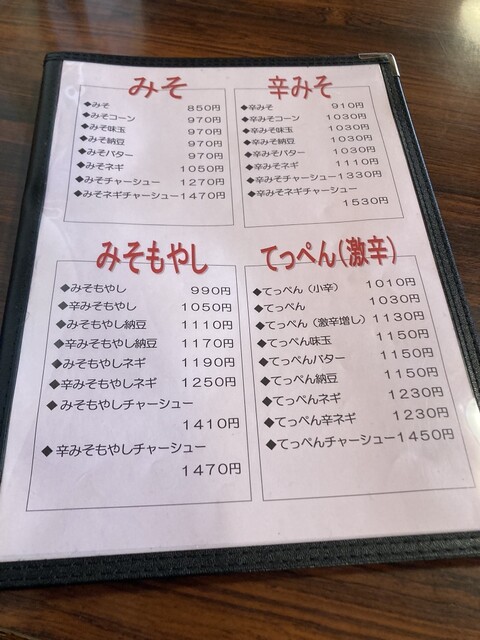 みそ
◆みそ 850円
◆みそコーン 970円
◆みそ味玉 970円
◆みそ納豆 970円
◆みそバター 970円
◆みそネギ 1050円
◆みそチャーシュー 1270円
◆みそネギチャーシュー 1470円
辛みそ
◆辛みそ 910円
◆辛みそコーン 1030円
◆辛みそ味玉 1030円
◆辛みそ納豆 1030円
◆辛みそバター 1030円
◆辛みそネギ 1110円
◆辛みそチャーシュー 1330円
◆辛みそネギチャーシュー
1530円
みそもやし
◆みそもやし 990円
◆辛みそもやし 1050円
◆みそもやし納豆 1110円
◆辛みそもやし納豆 1170円
◆みそもやしネギ 1190円
◆辛みそもやしネギ 1250円
◆みそもやしチャーシュー
1410円
◆辛みそもやしチャーシュー
1470円
てっぺん(激辛)
◆てっぺん（小辛） 1010円
◆てっぺん 1030円
◆てっぺん（激辛増し） 1130円
◆てっぺん味玉 1150円
◆てっぺんバター 1150円
◆てっぺん納豆 1150円
◆てっぺんネギ 1230円
◆てっぺん辛ネギ 1230円
◆てっぺんチャーシュー 1450円